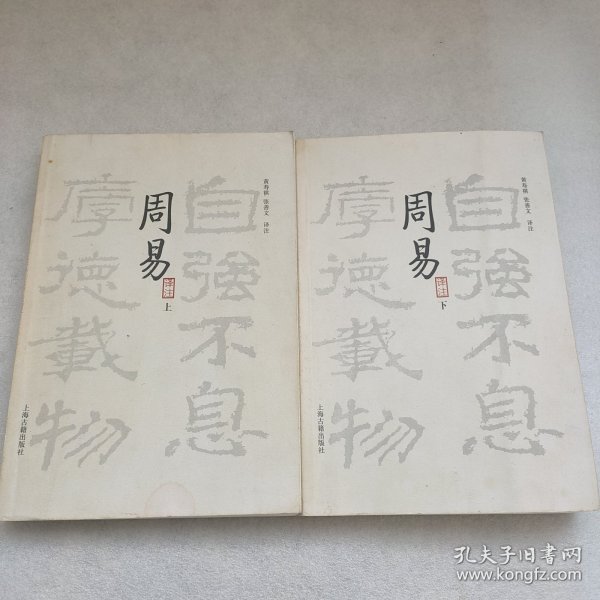 黄寿祺 张善文 译注
周易
译注
上
自強不息
厚德載物
上海古籍出版社
黄寿祺 张善文 译注
周易
译注
下
自強不息
厚德載物
上海古籍出版社
孔夫子旧书网
www.kongfz.com